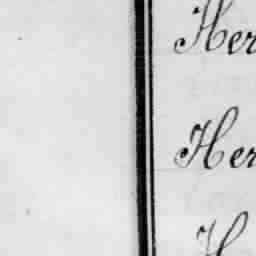 Her
Her
H